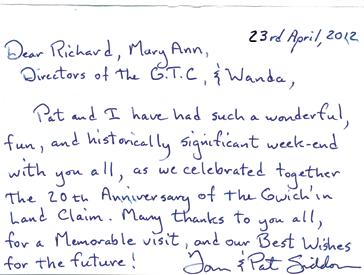 23rd April, 2012
Dear Richard, Mary Ann,
Directors of the G.T.C, & Wanda,
Pat and I have had such a wonderful,
fun, and historically significant week-end
with you all, as we celebrated together
The 20th Anniversary of the Gwich'in
Land Claim. Many thanks to you all,
for a Memorable visit, and our Best Wishes
for the future! Tom & Pat Siddon